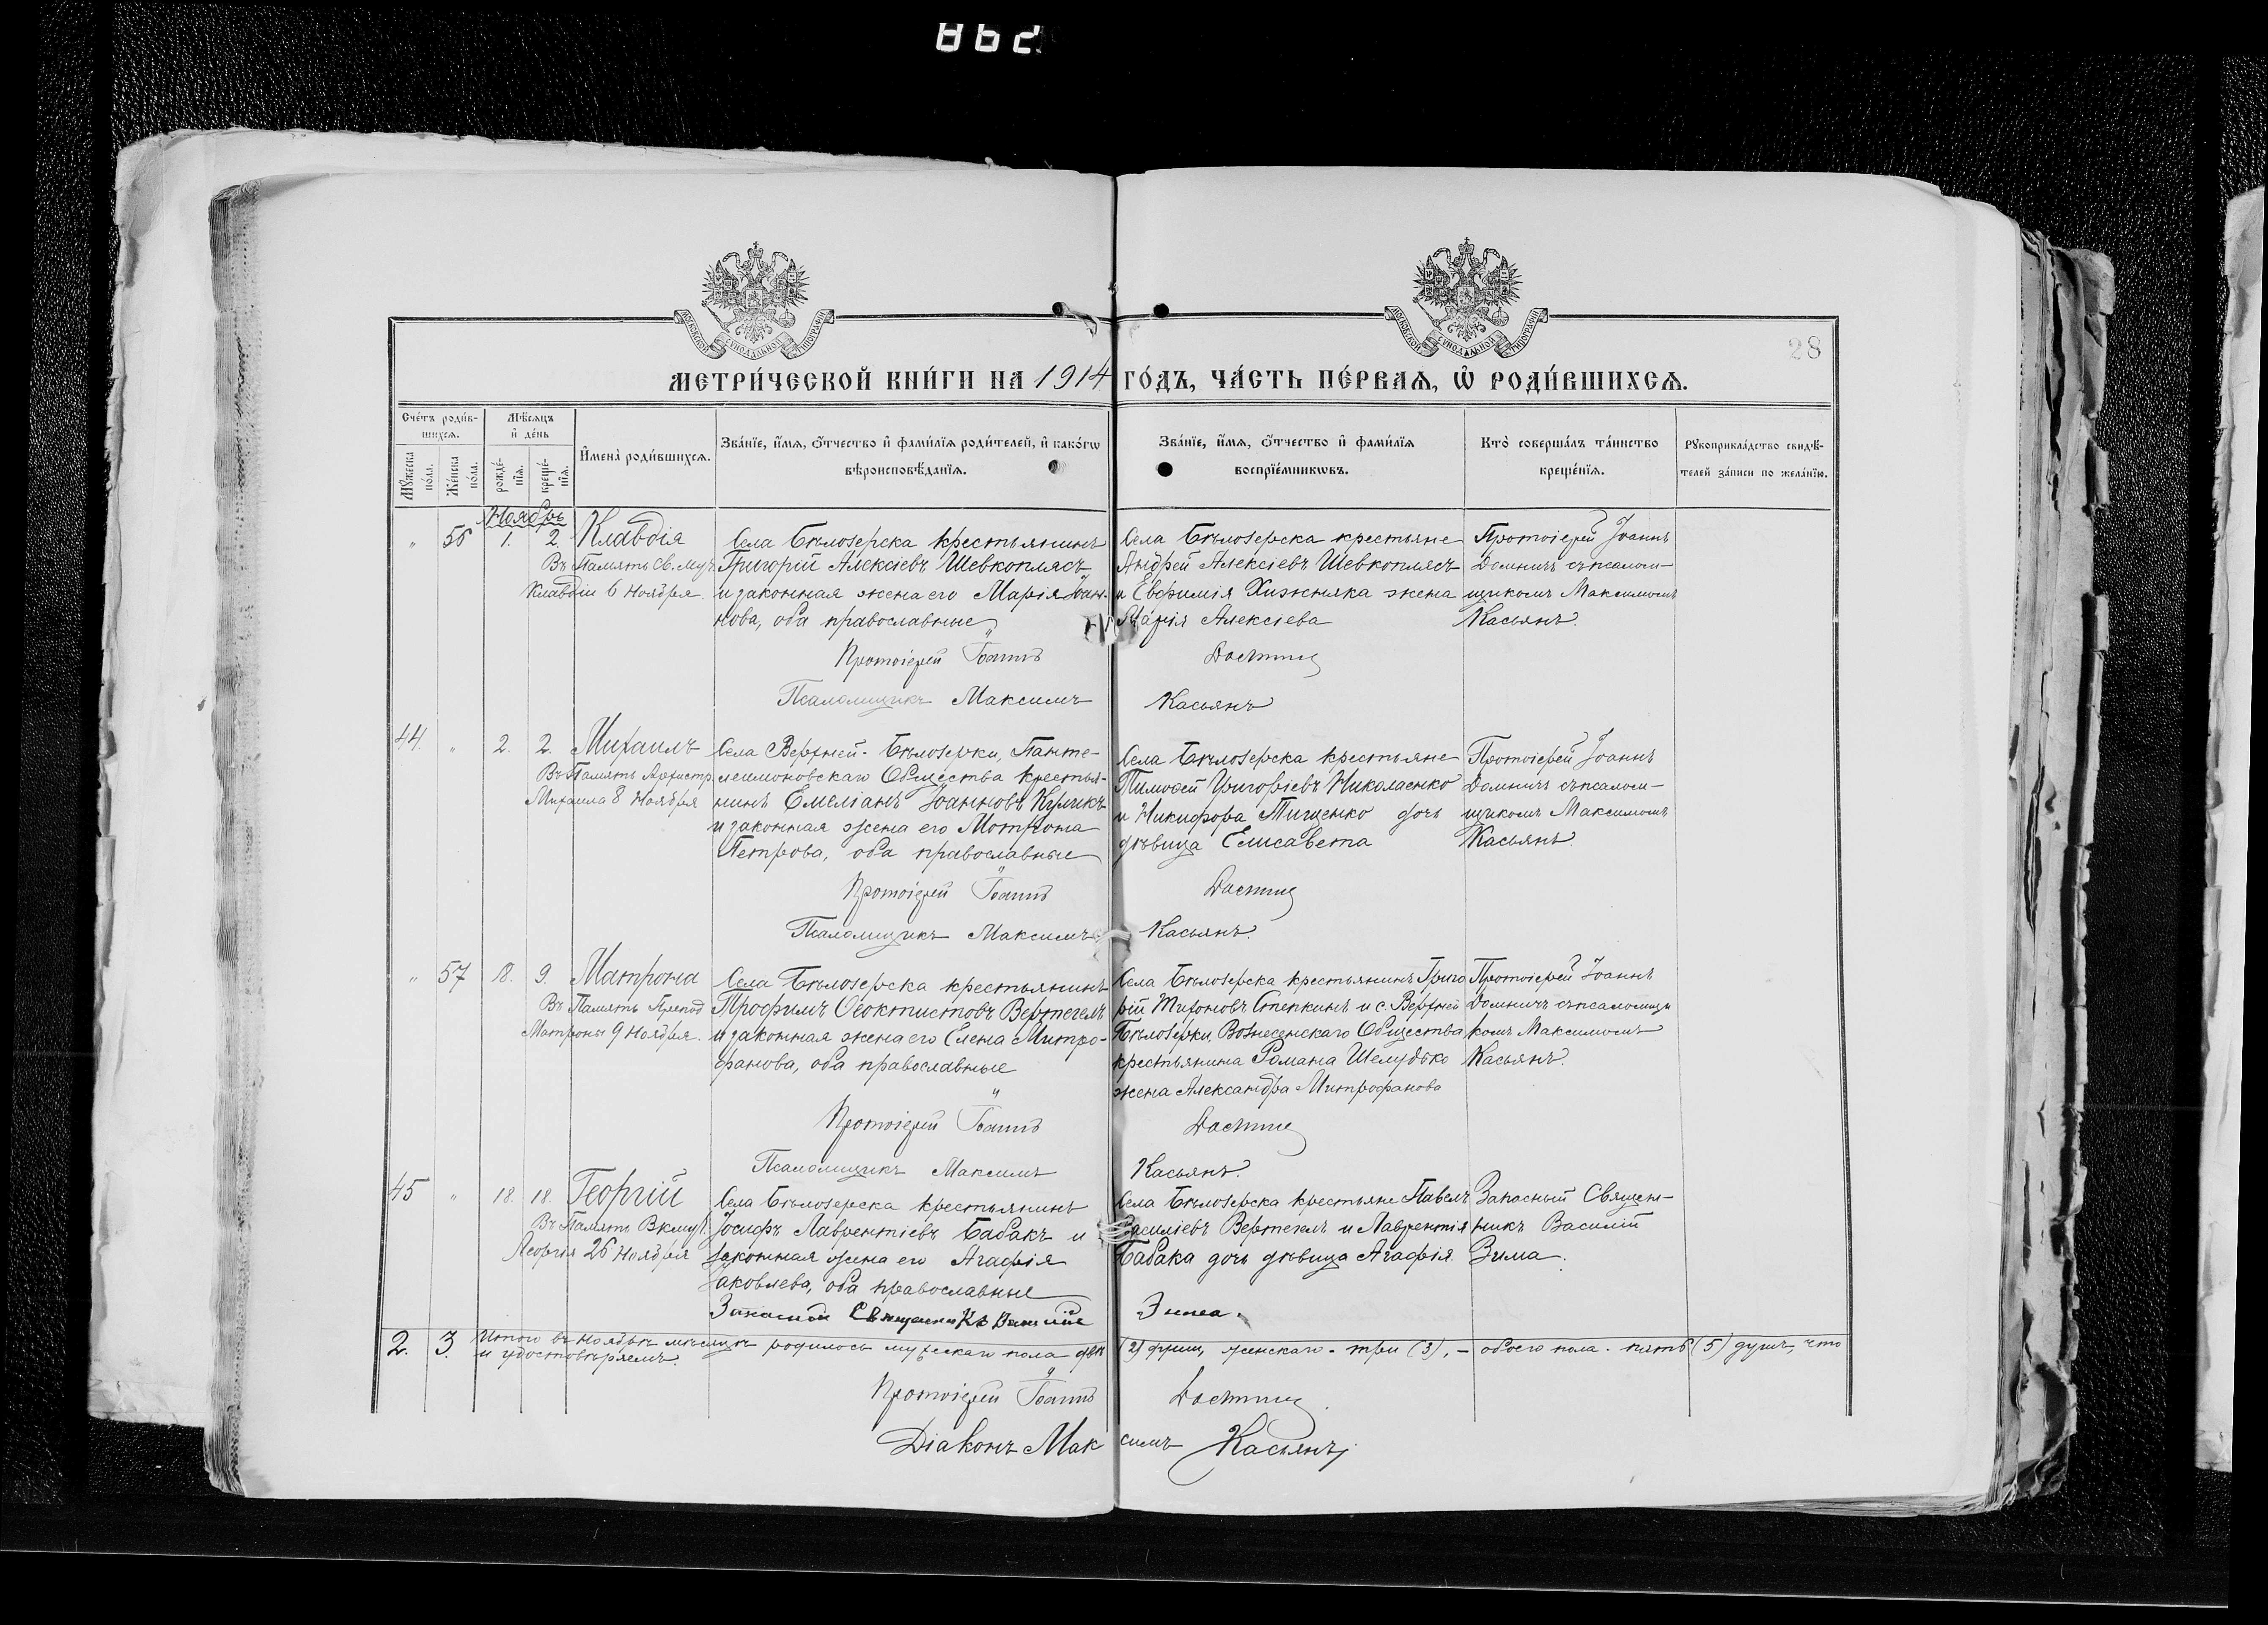 862
МОСКОВСКОЙ СУНОДАЛЬНОЙ ТИПОГРАФІИ
МОСКОВСКОЙ СУНОДАЛЬНОЙ ТИПОГРАФІИ
28
МЕТРИ́ЧЕСКОЙ КНИ́ГИ НА 1914 ГО́ДЪ, ЧА́СТЬ ПЕ́РВАѦ, Ѽ РОДИ́ВШИХСѦ.
Сче́тъ роди́в-
шихсѧ.
Мꙋ́жеска по́ла.
Же́нска по́ла.
Мѣ́сѧцъ
и҆ де́нь
рожде́-
нїѧ.
креще́-
нїѧ.
И҆мена̀ роди́вшихсѧ.
Зва́нїе, и҆́мѧ, ѻ҆́тчество и҆ фами́лїѧ роди́телей, и҆ како́гѡ
вѣроисповѣ́данїѧ.
Зва́нїе, и҆́мѧ, ѻ҆́тчество и҆ фами́лїѧ
воспрїе́мникѡвъ.
Кто̀ соверша́лъ та́инство
креще́нїѧ.
Рꙋкоприкла́дство свидѣ́-
телей за́писи по жела́нїю.
Ноябрь
" 56 1. 2. Клавдія
Въ Память Св. Муч.
Клавдіи 6 Ноября.
Села Бѣлозерска крестьянинъ
Григорій Алексіевъ Шевкоплясъ
и законная жена его Марія Іоан-
нова, оба православные
Села Бѣлозерска крестьяне
Андрей Алексіевъ Шевкоплясъ
и Евфимія Хижняка жена
Марія Алексіева
Протоіерей Іоаннъ
Домничъ съ псалом-
щикомъ Максимомъ
Касьянъ.
Протоіерей Іоаннъ Домничъ
Псаломщикъ Максимъ Касьянъ
44. " 2. 2. Михаилъ
Въ Память Архистр.
Михаила 8 Ноября
Села Верхней-Бѣлозерки, Панте-
леимоновскаго Общества крестья-
нинъ Емеліанъ Іоанновъ Куликъ
и законная жена его Мотрона
Петрова, оба православные
Села Бѣлозерска крестьяне
Тимофей Григоріевъ Николаенко
и Никифора Тищенко дочь
дѣвица Елисавета
Протоіерей Іоаннъ
Домничъ съ псалом-
щикомъ Максимомъ
Касьянъ.
Протоіерей Іоаннъ Домничъ
Псаломщикъ Максимъ Касьянъ.
" 57 8. 9. Матрона
Въ Память Препод
Матроны 9 Ноября.
Села Бѣлозерска крестьянинъ
Трофимъ Ѳеоктистовъ Вертегелъ
и законная жена его Елена Митро-
фанова, оба православные
Села Бѣлозерска крестьянинъ Григо
рій Тихоновъ Степкинъ и с. Верхней
Бѣлозерки, Вознесенскаго Общества
крестьянина Романа Шелудько
жена Александра Митрофанова
Протоіерей Іоаннъ
Домничъ съ псаломщи
комъ Максимомъ
Касьянъ.
Протоіерей Іоаннъ Домничъ
Псаломщикъ Максимъ Касьянъ.
45 " 18. 18. Георгій
Въ Память Вкмуч.
Георгія 26 Ноября
Села Бѣлозерска крестьянинъ
Іосифъ Лаврентіевъ Бабакъ и
законная жена его Агафія
Іаковлева, оба православные
Села Бѣлозерска крестьяне Павелъ
Василіевъ Вертегелъ и Лаврентія
Бабака дочь дѣвица Агафія
Запасный Священ-
никъ Василій
Зима.
Запасной Священникъ Василій Зима.
2. 3. Итого въ Ноябрѣ мѣсяцѣ родилось мужскаго пола двѣ (2) души, женскаго - три (3), - обоего пола - пять (5) душъ, что
и удостовѣряемъ.
Протоіерей Іоаннъ Домничъ
Діаконъ Максимъ Касьянъ.